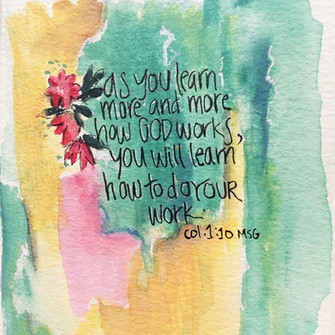 as you learn
more and more
how GOD works,
you will learn
how to do YOUR
work
Col:1:10 MSG